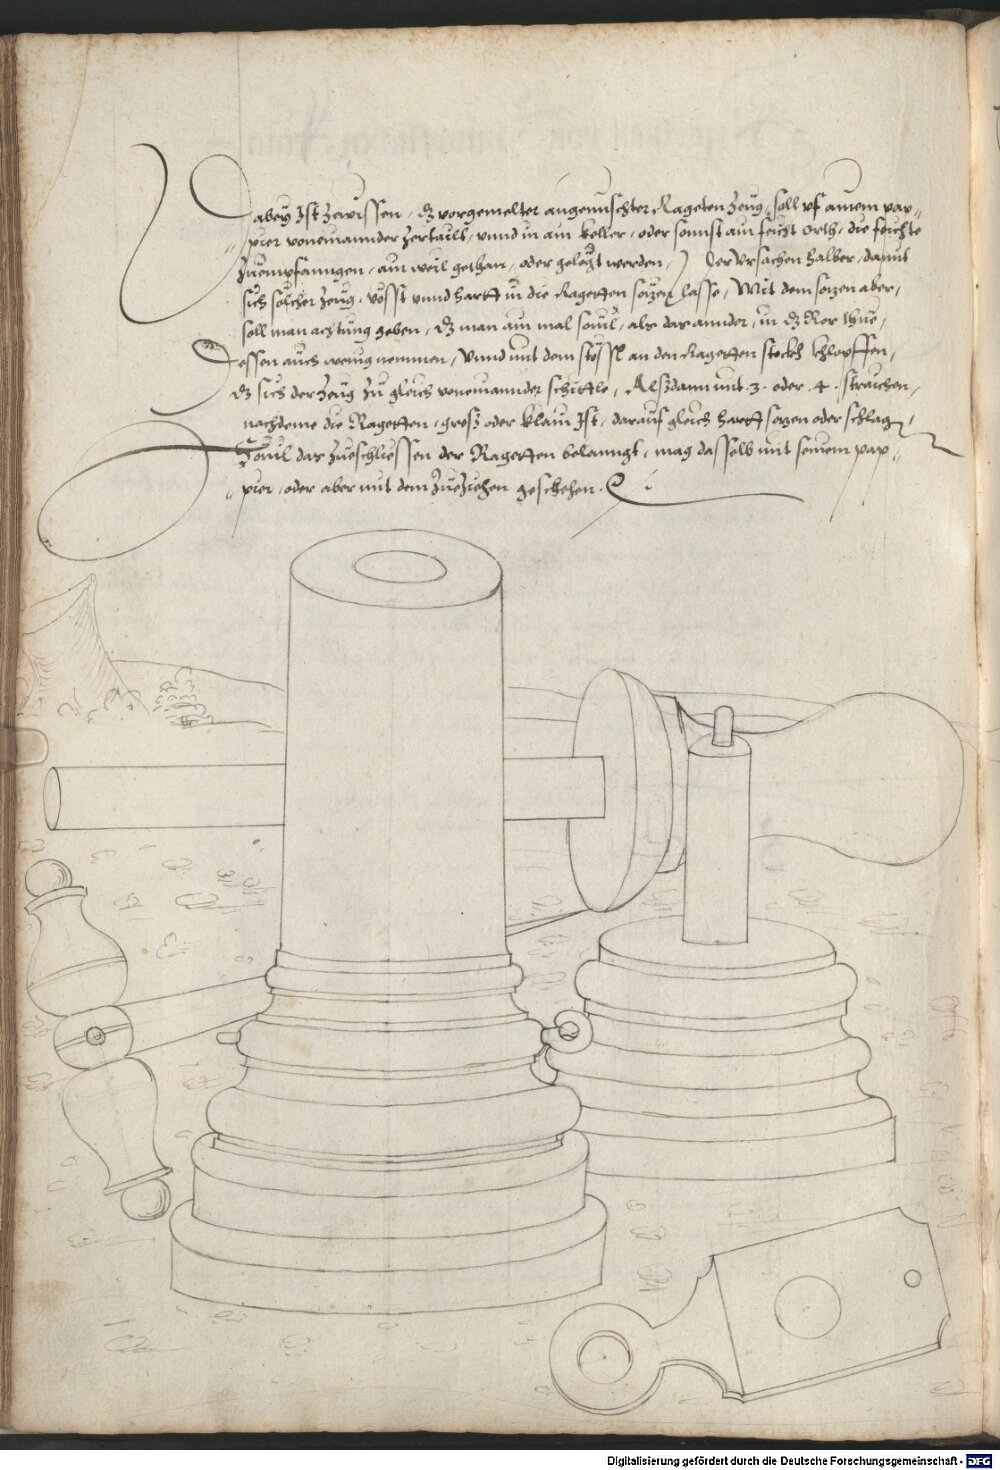 Dabeÿ Ist Zewissen, dz vorgemelter angemischter Rageten Zeug, soll vf ainem pap„
„pier voneinannder Zertailt, vnnd in ain Keller, oder sonnst ain feicht Orth, die feichte
Zuempfanngen, ain weil gethan, oder gelegt werden, Der Vrsachen halber, damit
sich solcher Zeug, vösst vnnd hartt in die Ragetten sezen lasse, Mit dem sezen aber,
soll man achtung geben, dz man ain mal souil, als das annder, in dz Ror thüe,
Dessen auch wenig nemmen, Vnnd mit dem stössl an den Ragetten stockh khlopffen,
dz sich der Zeug Zu gleich voneinannder schittle, Alßdann mit .3. oder .4. straichen,
nachdeme die Ragetten, groß oder klain Ist, darauf gleich hartt sezen oder schlagen,
Souil das Zueschliessen der Ragetten belanngt, mag dasselb mit seinem pap„
„pier, oder aber mit dem Zueziehen geschehen.
Digitalisierung gefördert durch die Deutsche Forschungsgemeinschaft - DFG